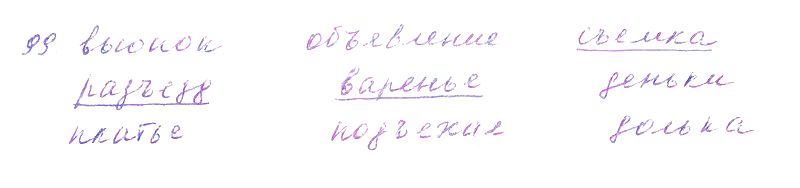 99 вьюнок объявление съемка
разъезд варенье деньки
платье подъехал долька